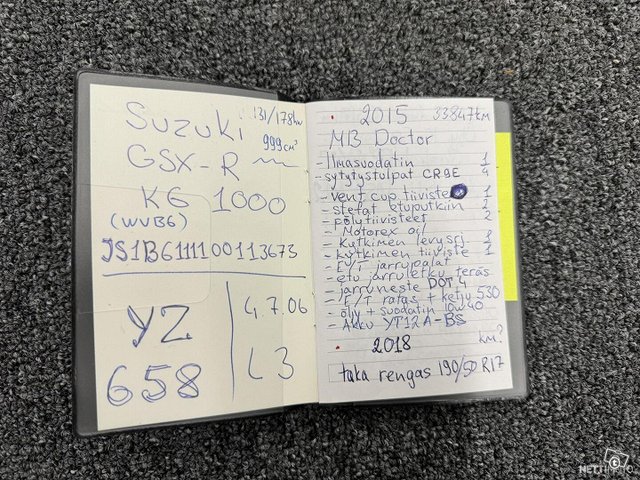 Suzuki
131/178kw
999cm³
GSX-R
K6 1000
(WVB6)
JS1B6111100113673
YZ
658
4.7.06
L3
• 2015 33847km
MB Doctor
- Ilmasuodatin 1
- sytytystolpat CR9E 4
- vent cup tiiviste 1
- stefat etuputkiin 2
- pölytiivisteet 2
- Motorex oil
- Kytkimen levysrj 1
- kytkimen tiiviste 1
- E/T jarrupalat
- etu jarruletku teräs
- jarruneste DOT 4
- E/T ratas + ketju 530
- öljy + suodatin 10w40
- Akku YT12A-BS
• 2018 km?
taka rengas 190/50 R17
NETTI